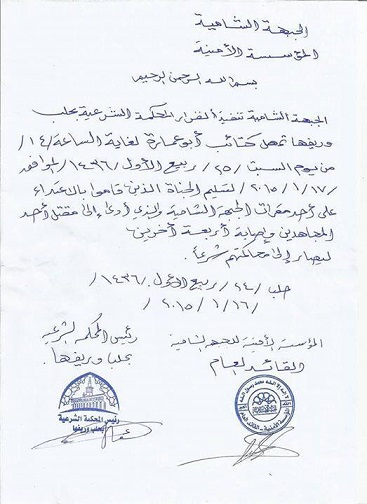 الجبهة الشامية
المؤسسة الأمنية
بسم الله الرحمن الرحيم
الجبهة الشامية تنفيذاً لقرار المحكمة الشرعية بحلب
وريفها تمهل كتائب أبو عمارة لغاية الساعة /١٤/
من يوم السبت /٢٥/ ربيع الأول /١٤٣٦/ الموافق
/١٧/ ١/ ٢٠١٥/ لتسليم الجناة الذين قاموا بالاعتداء
على أحد مقرات الجبهة الشامية والذي أدى إلى مقتل أحد
المجاهدين وإصابة أربعة آخرين
ليصار إلى محاكمتهم شرعاً.
حلب /٢٤/ ربيع الأول /١٤٣٦/
/١٦/ ١/ ٢٠١٥/
المؤسسة الأمنية للجبهة الشامية
القائد العام
رئيس المحكمة الشرعية
بحلب وريفها.
رئيس المحكمة الشرعية
بحلب وريفها